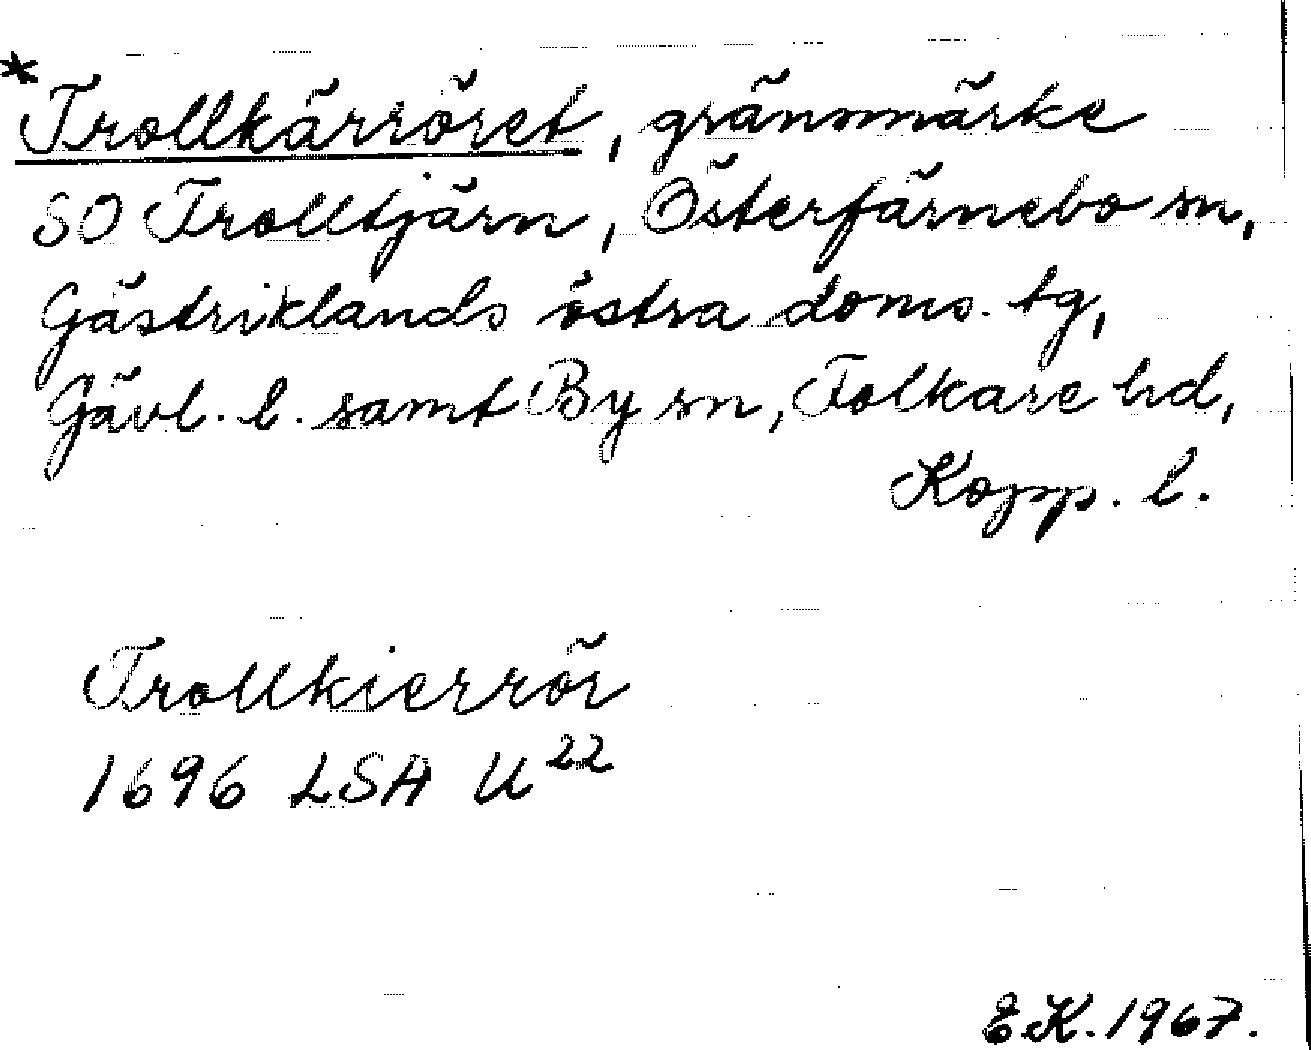 *Trollkärröret, gränsmärke
SO Trolltjärn, Österfärnebo sn,
Gästriklands östra doms. tg,
Gävl. l. samt By sn, Folkare hd,
Kopp. l.
Trollkierrör
1696 LSA U²²
E.K. 1967.